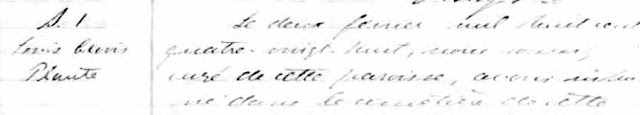 S. 1
Louis
Plante
Le deux février mil huit cent
quatre-vingt-huit, nous soussi
curé de cette paroisse, avons inhu
mé dans le cimetière de cette